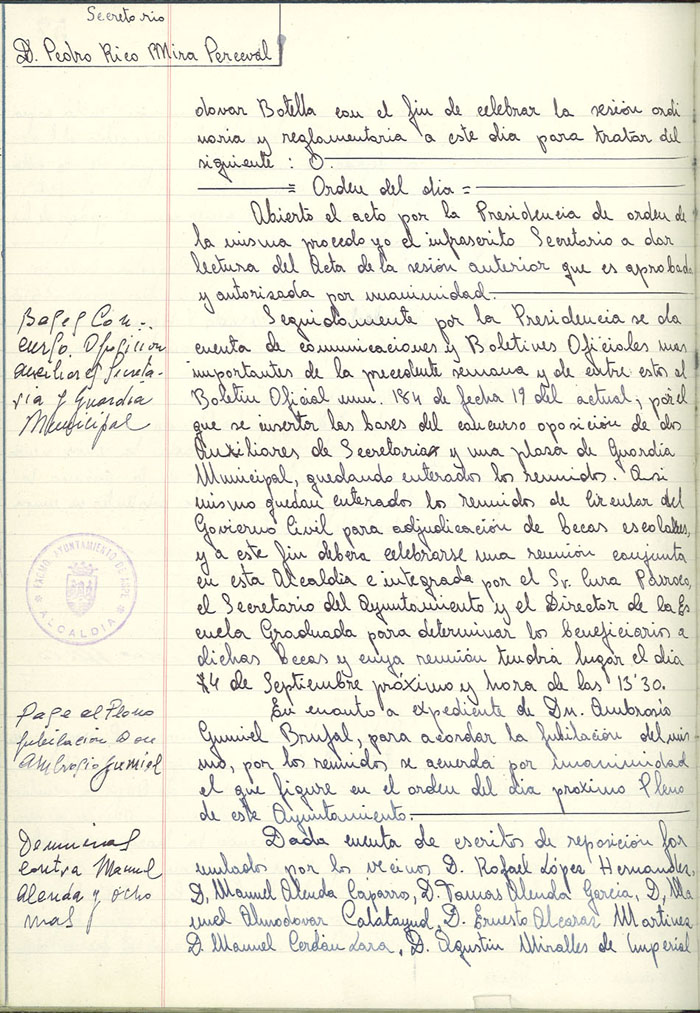 Secretario
D. Pedro Rico Mira Perceval
dovar Botella con el fin de celebrar la sesión ordi
naria y reglamentaria a este dia para tratar del
siguiente : O.
= Orden del dia =
Abierto el acto por la Presidencia de orden de
la misma procedo yo el infrascrito Secretario a dar
lectura del Acta de la sesión anterior que es aprobada
y autorizada por unanimidad.
Bases Con..
curso. Oposicion
auxiliares Secreta-
ría y Guardia
Municipal
Seguidamente por la Presidencia se da
cuenta de comunicaciones y Boletines Oficiales mas
importantes de la precedente semana y de entre estos el
Boletin Oficial num. 184 de fecha 19 del actual, por el
que se insertar las bases del concurso oposición de dos
Auxiliares de Secretaria y una plaza de Guardia
Municipal, quedando enterados los reunidos. Asi
mismo quedan enterados los reunidos de Circular del
Govierno Civil para adjudicación de becas escolares,
y a este fin debera celebrarse una reunión conjunta
en esta Alcaldía e integrada por el Sr. Cura Párroco,
el Secretario del Ayuntamiento y el Director de la Es
cuela Graduada para determinar los beneficiarios a
dichas becas y cuya reunión tendrá lugar el dia
4 de Septiembre próximo y hora de las 13'30.
EXCMO. AYUNTAMIENTO DE ASPE
* ALCALDIA *
Pase al Pleno
jubilación Don
Ambrosio Gumiel
En cuanto a expediente de Dn. Ambrosio
Gumiel Brufal, para acordar la jubilación del mis
mo, por los reunidos se acuerda por unanimidad
el que figure en el orden del dia próximo Pleno
de este Ayuntamiento.
Denuncias
contra Manuel
Alenda y ocho
mas
Dada cuenta de escritos de reposición for
mulados por los vecinos D. Rafael López Hernandez,
D. Manuel Alenda Caparro, D. Tomas Alenda Garcia, D. Ma
nuel Almodovar Calatayud, D. Ernesto Alcaraz Martinez
D. Manuel Cerdán Lara, D. Agustin Miralles de Imperial